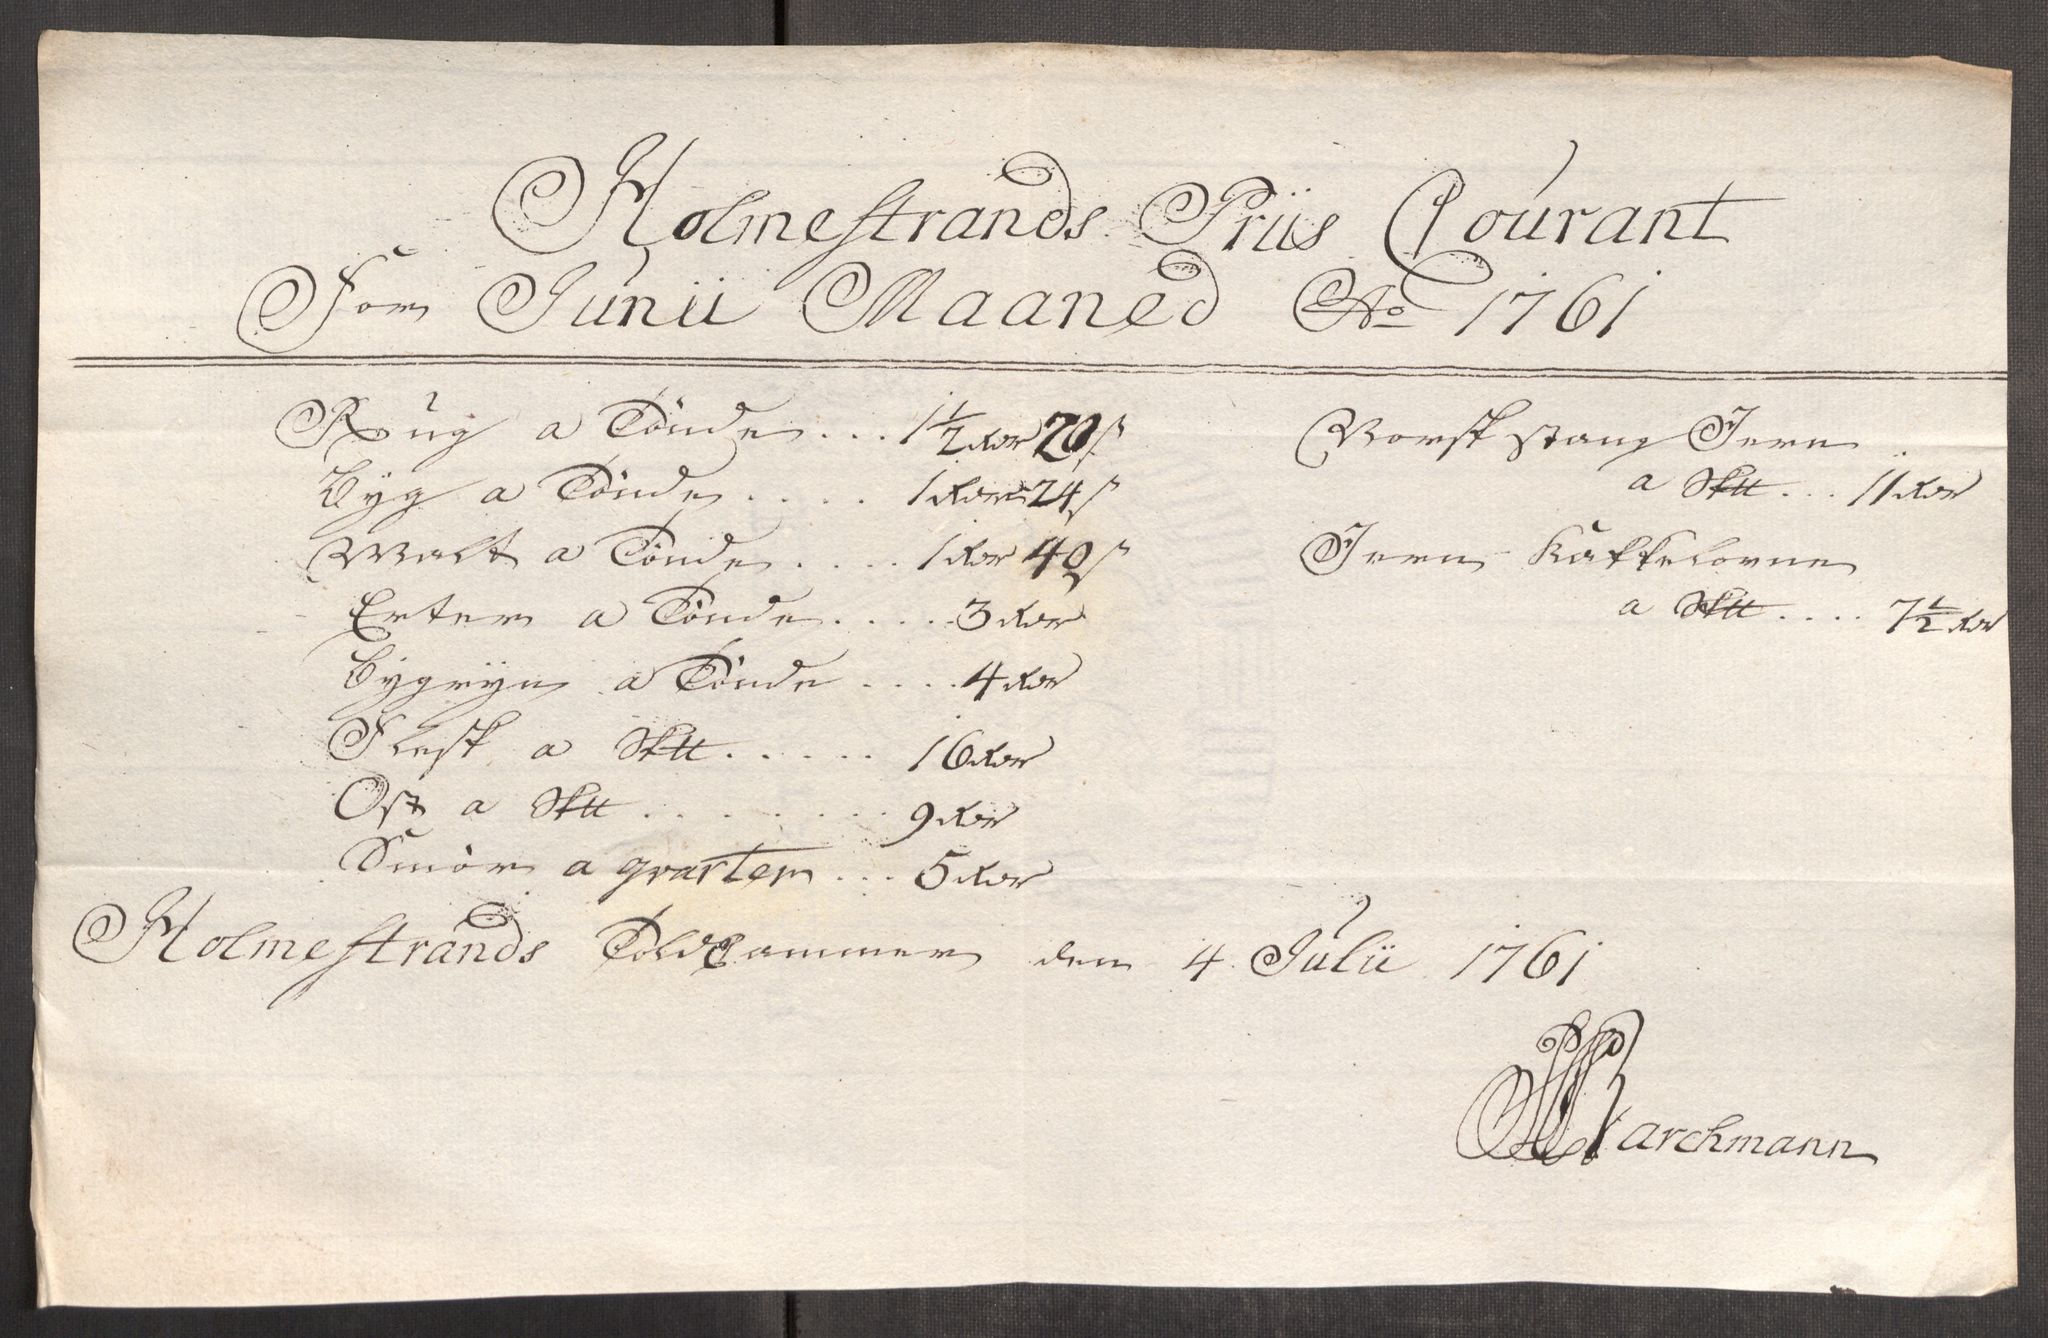 Holmestrands Priis Courant
For Junii Maaned Ao 1761
Rug a Tönde ... 1 1/2 Rdr 20 s
Byg a Tönde ..... 1 Rdr 24 s
Malt a Tönde ..... 1 Rdr 40 s
Erter a Tönde ..... 3 Rdr
Byggryn a Tönde .... 4 Rdr
Flesk a Sk℔ ..... 16 Rdr
Ost a Sk℔ ........ 9 Rdr
Smör a qvarteer ... 5 Rdr
Norsk Stang Jern
a Sk℔ ... 11 Rdr
Jern Kakkelovne
a Sk℔ .... 7 1/2 Rdr
Holmestrands Toldcammer den 4 Julii 1761
Barchmann